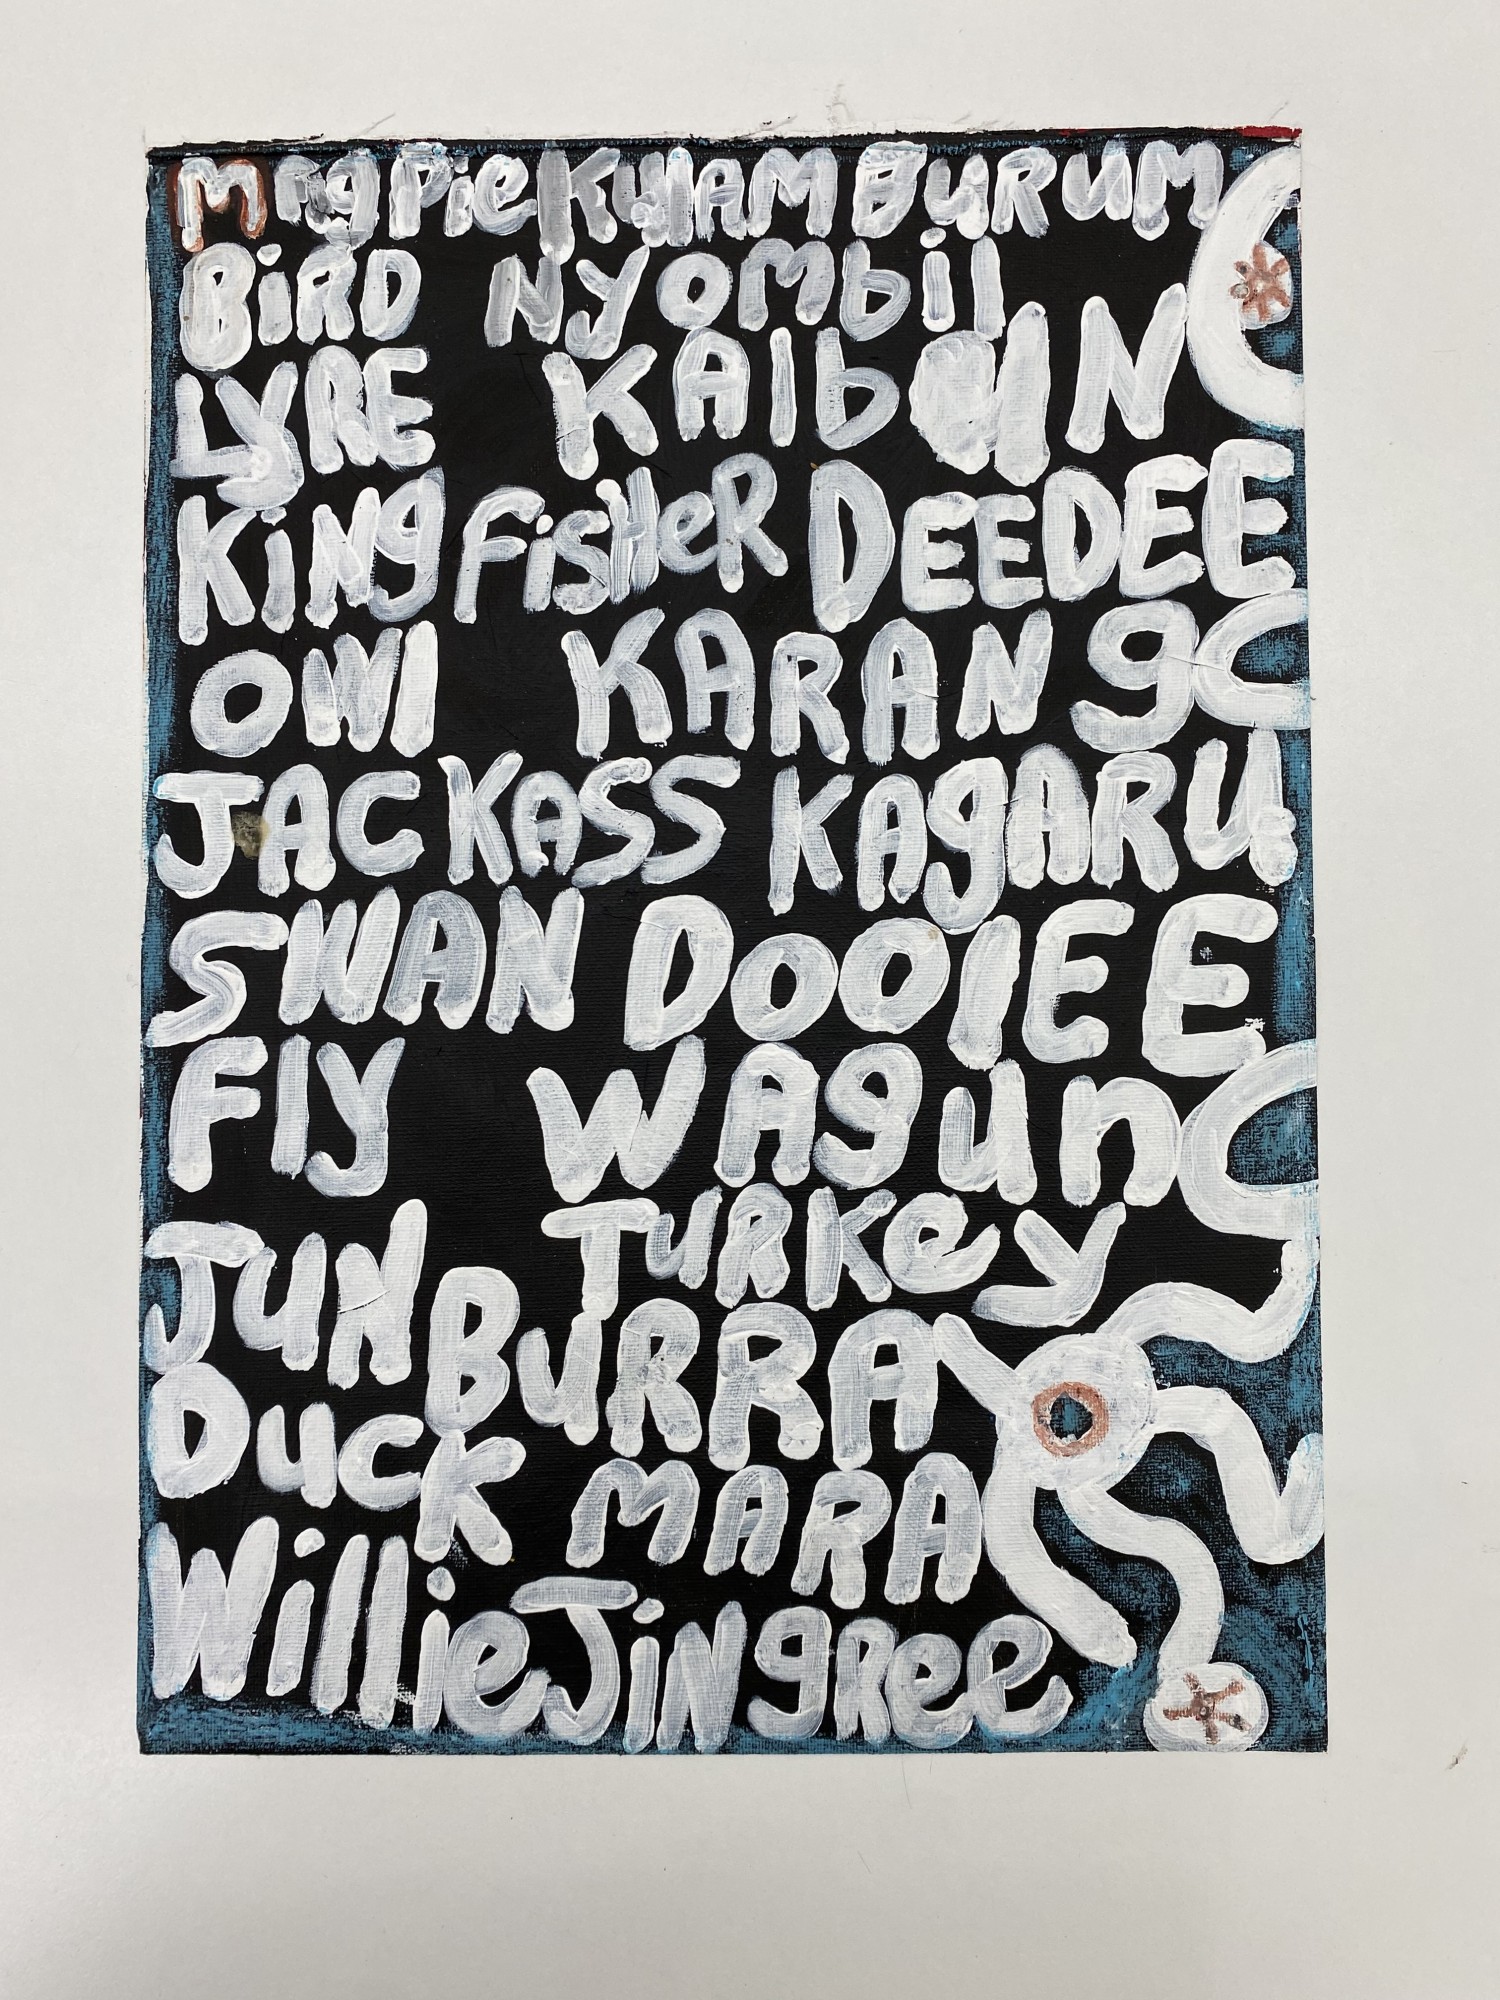 MAgPie KWAM BURUM
BiRD NyOMbil
LYRE KAlbUIN
KiNg FisHeR DEEDEE
OWl KARANg
JACKASS KAgARU
SWAN DOOlEE
FlY WAgun
JUN TURKey
BURRA
DucK MARA
WillieJiNgRee